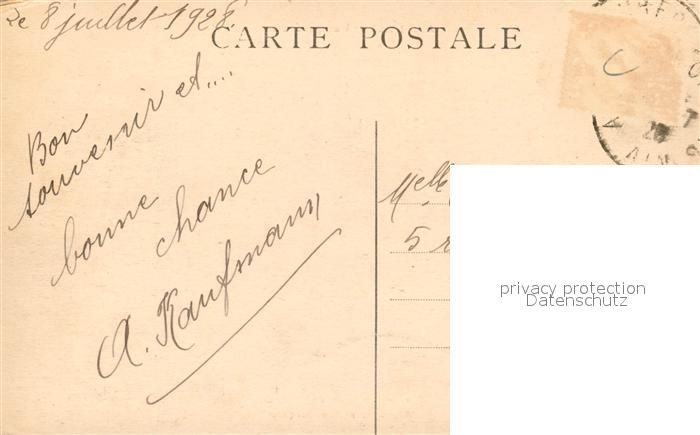 Le 8 juillet 1928
CARTE POSTALE
Bon
souvenir et....
bonne
chance
A. Kaufmann
C
Melle
5 r
privacy protection
Datenschutz